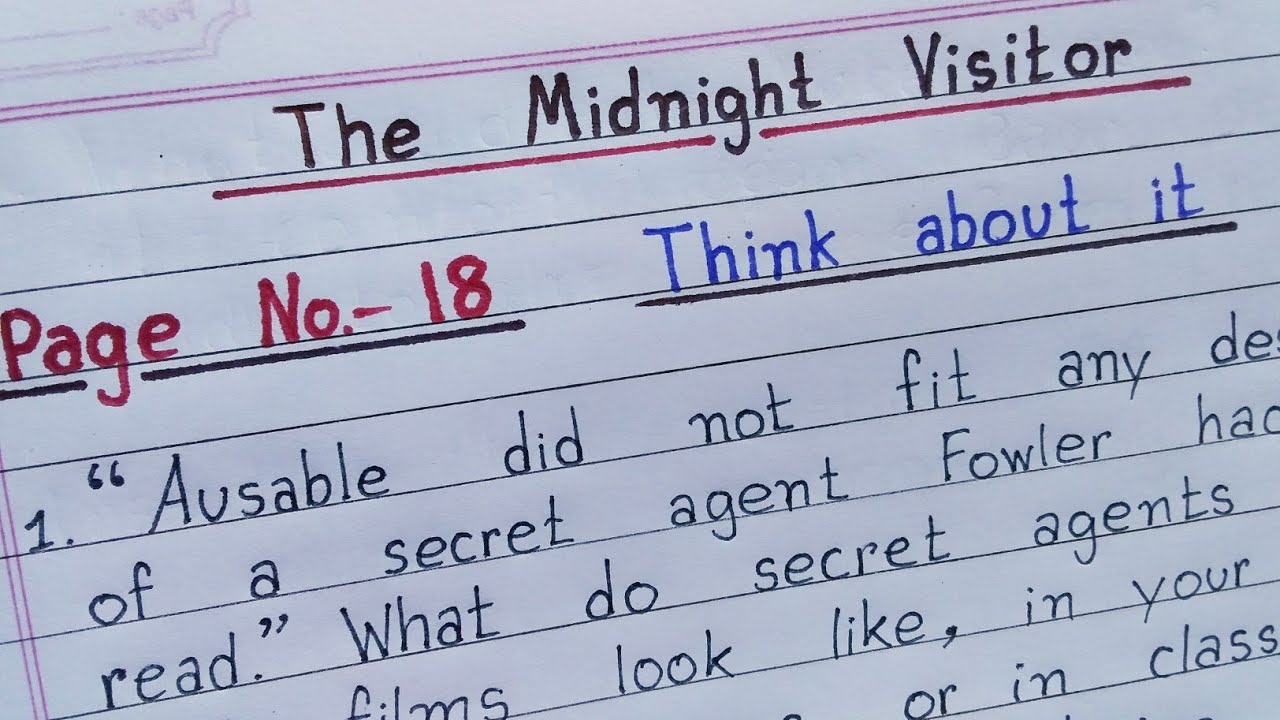 The Midnight Visitor
Page No.- 18 Think about it
1. “Ausable did not fit any
of a secret agent Fowler
read.” What do secret agents
films look like, in your
or in class